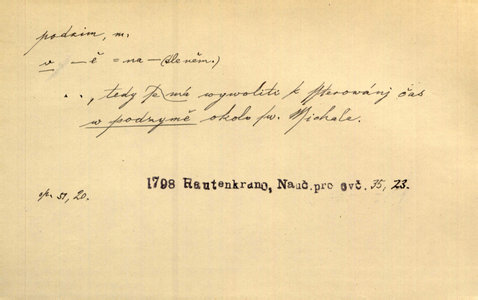 podzim, m.
v — ě = na — (Slevěm.)
..., tedy se má wywoliti k sserowánj čas
w podzymě okolo sw. Michale.
1798 Rautenkranc, Nauč. pro ovč. 35, 23.
51, 20.